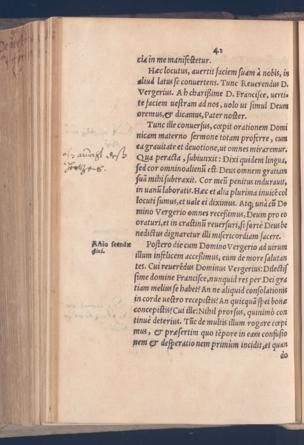 42
cia in me manifestetur.
Hæc locutus, avertit faciem suam à nobis, in
aliud latus se convertens. Tunc Reverendus D.
Vergerius. Ah charissime D. Francisce, verti-
te faciem vestram ad nos, volo ut simul Deum
oremus, & dicamus, Pater noster.
Tunc ille conversus, cœpit orationem Domi
nicam materno sermone totam proferre, cum
ea gravitate et devotione, ut omnes miraremur.
Qua peracta, subiunxit: Dixi quidem lingua,
sed cor omnino alienū est. Deus omnem gratiam
suā mihi subtraxit. Cor meū penitus induravit,
in vanū laboratis. Hæc et alia plurima invicē col
locuti sumus, et vale ei diximus. Atq; unà cū Do
mino Vergerio omnes recessimus, Deum pro eo
oraturi, et in crastinū reversuri, si forte Deus be
nedictus dignaretur illi misericordiam facere.
Actio secunda
Postero die cum Domino Vergerio ad virum
illum infelicem accessimus, eum de more salutan
tes. Cui reverēdus Dominus Vergerius: Dilectis
sime domine Francisce, nunquid res per Dei gra
tiam melius se habet? An ne aliquid consolationis
in corde vestro recepistis? An quicquā spei bonæ
concepistis? Cui ille: Nihil prorsus, quinimò con
tinuè deterius. Tūc de multis illum rogare cœpi
mus, & præsertim quo tēpore in eam confusio
nem & desperationem primùm incidit, et quan
do